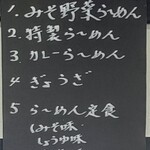 1. みそ野菜らーめん
2. 特製らーめん
3 カレーらーめん
4 ぎょうざ
5 らーめん定食
みそ味
しょうゆ味